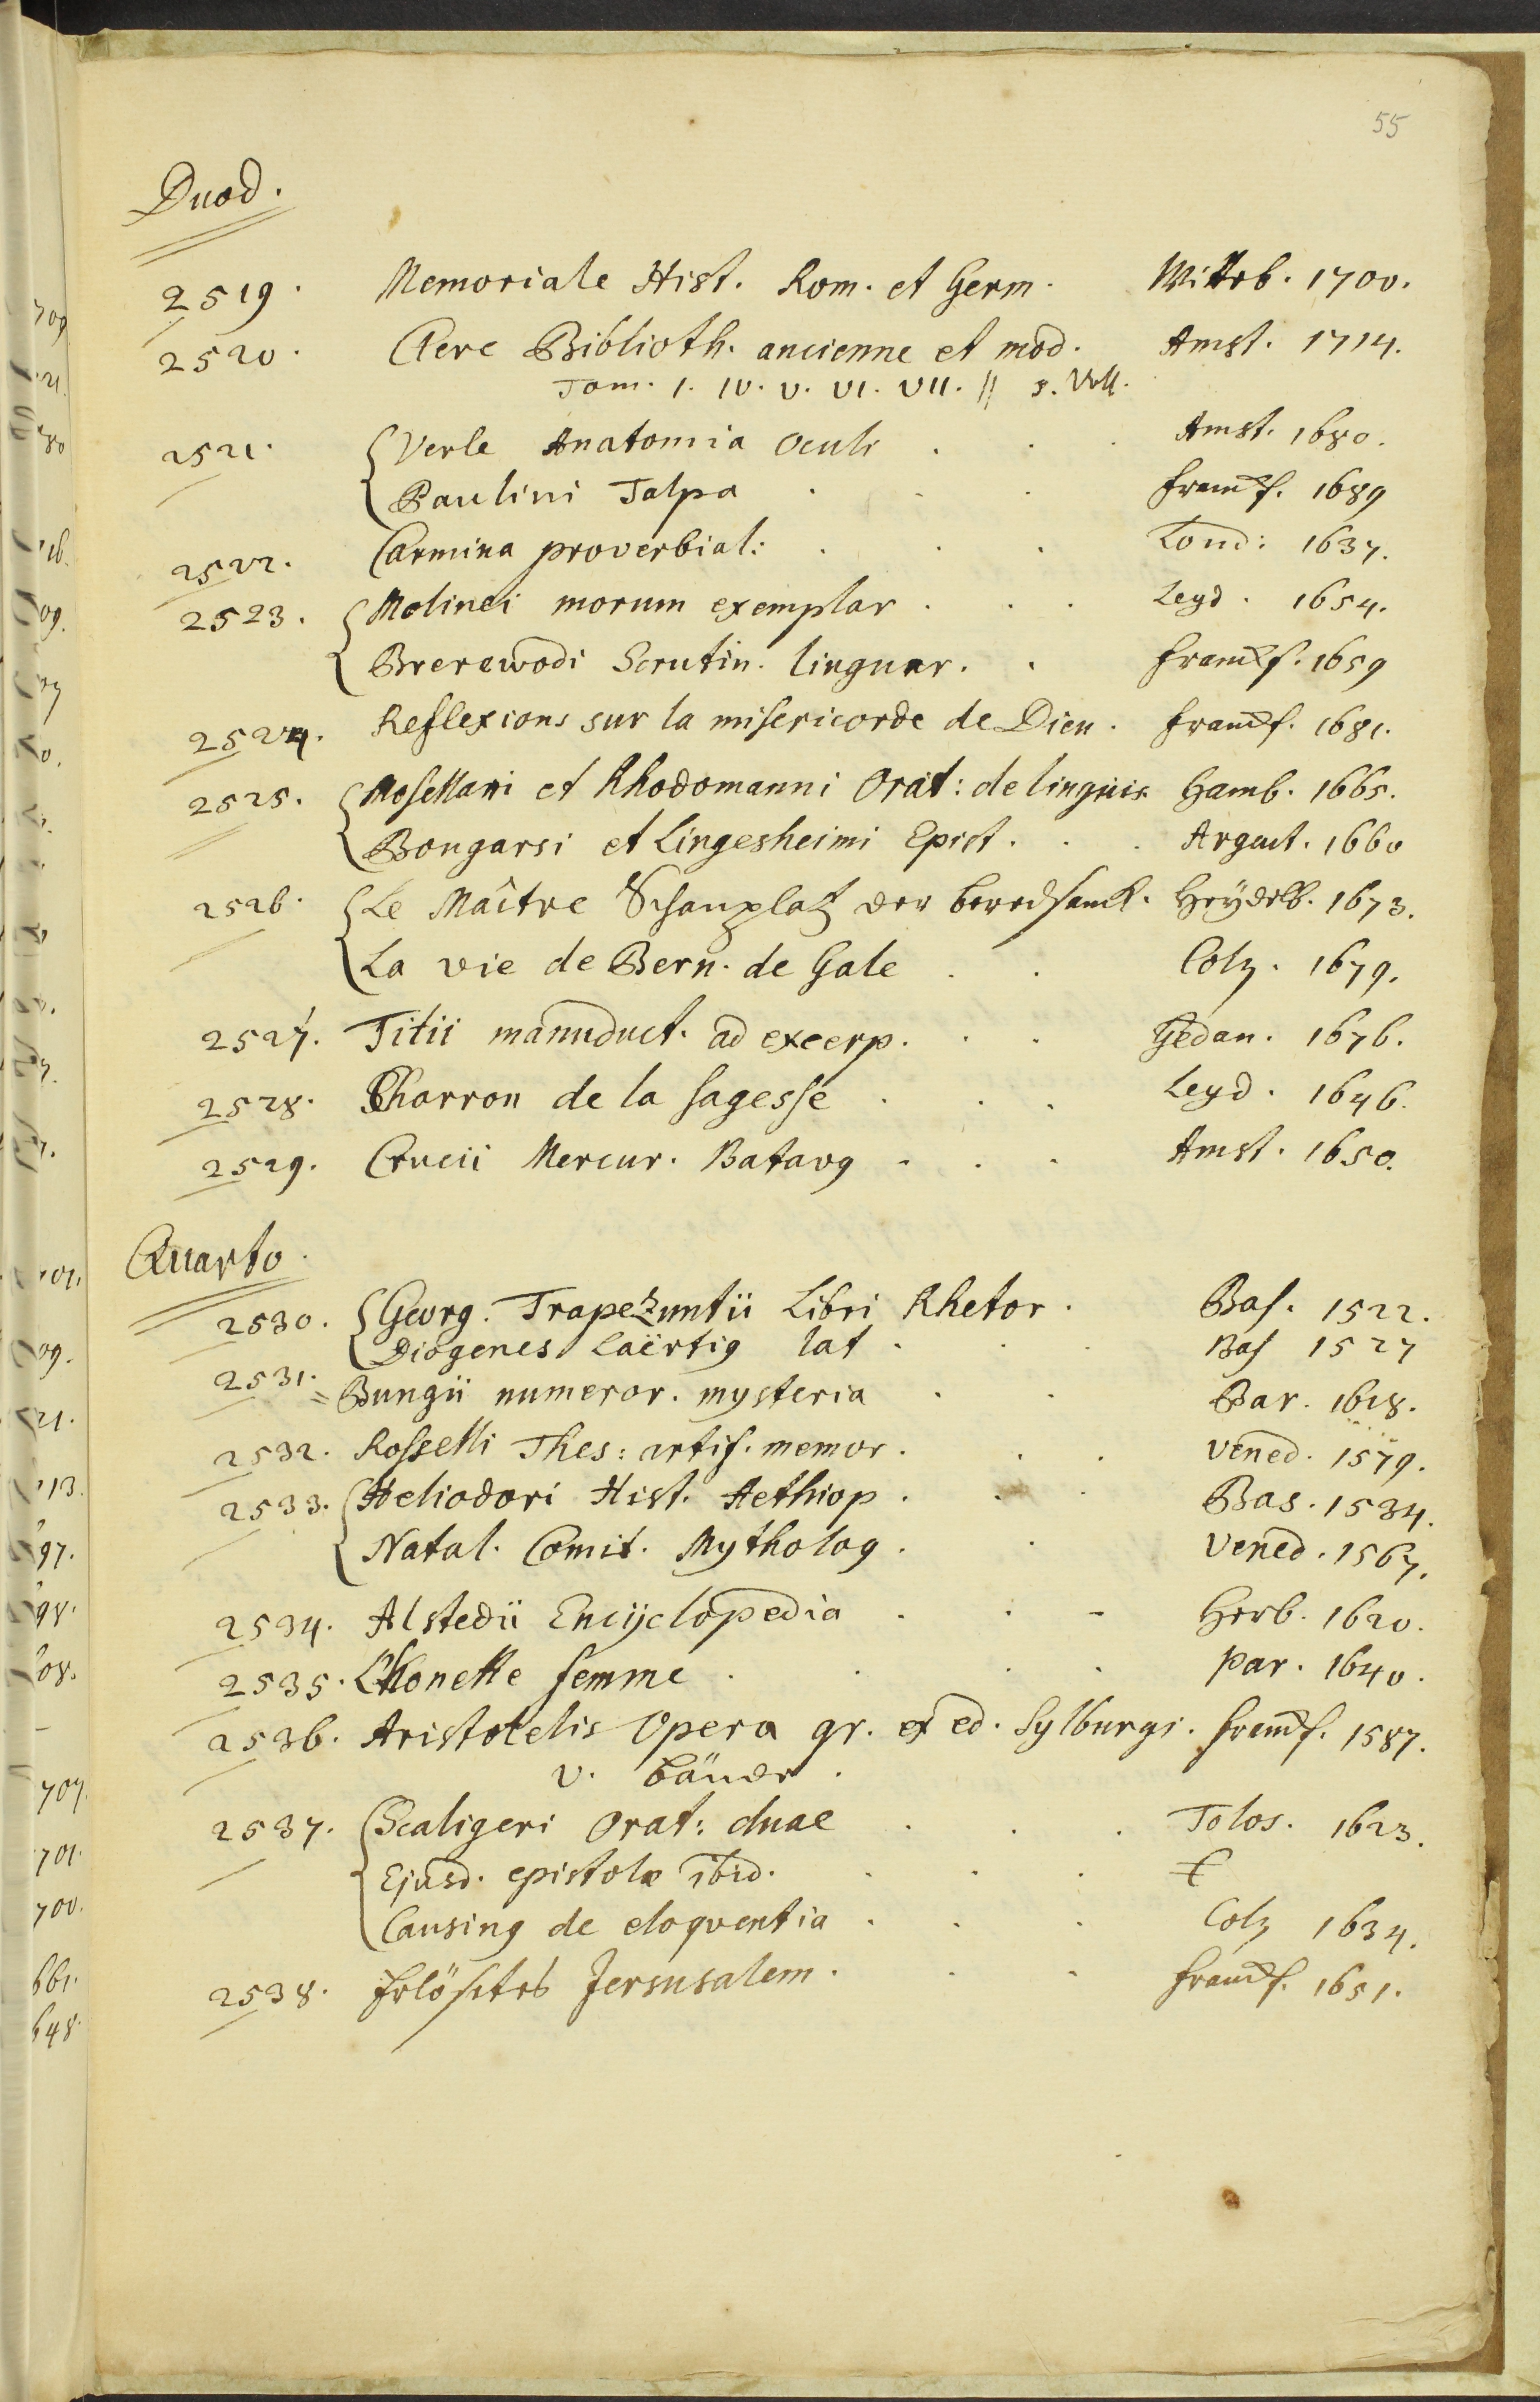 55
Duod.
2519. Memoriale Hist. Rom. et Germ. Witteb. 1700.
2520. Clerc Biblioth. ancienne et mod. Amst. 1714.
Tom. I. IV. V. VI. VII. || 5. Voll.
2521. Verle Anatomia oculi . . . Amst. 1680.
Paulini Talpa . . . Franckf. 1689
2522. Carmina proverbial: . . . Lond: 1637.
2523. Molinei morum exemplar . . . Leyd. 1654.
Brerewodi Scrutin. linguar. . Franckf. 1659
2524. Reflexions sur la misericorde de Dieu. Franckf. 1681.
2525. Mosellani et Rhodomanni Orat: de linguis Hamb. 1665.
Bongarsi et Lingesheimi Epist. . . Argent. 1660
2526. Le Maître Schauplatz der beredsamk. Heÿdelb. 1673.
La vie de Bern. de Gale . . Coln. 1679.
2527. Titii manuduct. ad excerp. . . Gedan. 1676.
2528. Charron de la sagesse . . . Leyd. 1646.
2529. Crucii Mercur. Batavus . . . Amst. 1650.
Quarto.
2530. Georg. Trapezuntii Libri Rhetor. Bas. 1522.
Diogenes Laërtius lat . . . Bas 1527
2531. = Bungii numeror. mysteria . . Par. 1618.
2532. Rosselli Thes: artif. memor. . . Vened. 1579.
2533. Heliodori Hist. Aethiop. . . Bas. 1534.
Natal. Comit. Mytholog. . Vened. 1567.
2534. Alstedii Encÿclopedia . . - Herb. 1620.
2535. L'Honette femme . . . . Par. 1640.
2536. Aristotelis Opera gr. ex ed. Sylburgi. Franckf. 1587.
V. Bände.
2537. Scaligeri Orat: duae . . . Tolos. 1623.
Ejusd. epistolæ ibid. . . .
Causinus de eloqventia . . . Coln 1634.
2538. Erlösetes Jersusalem. . . Franckf. 1651.